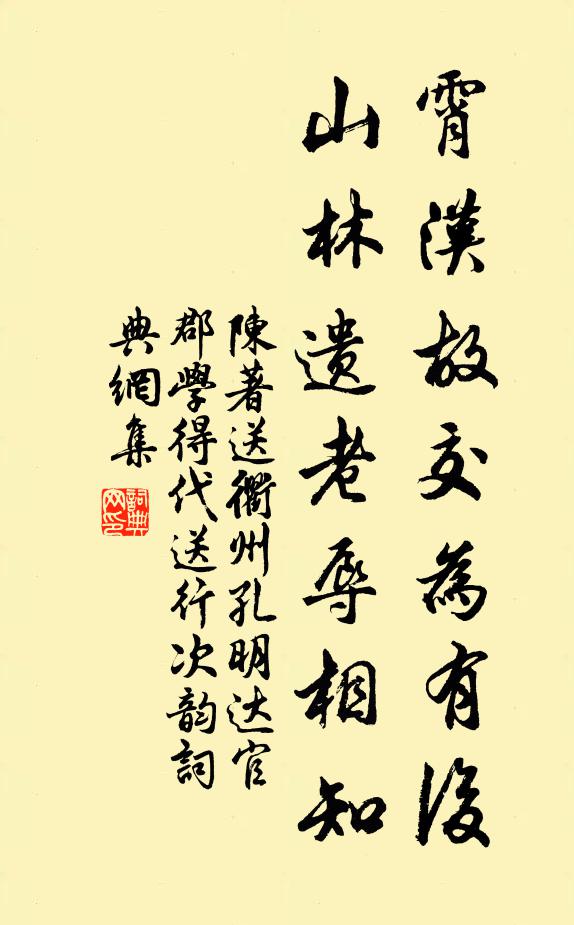 霄漢故交為有後
山林遺老辱相知
陳著送衢州孔明达官
郡學得代送行次韵詞
典網集
詞典网印